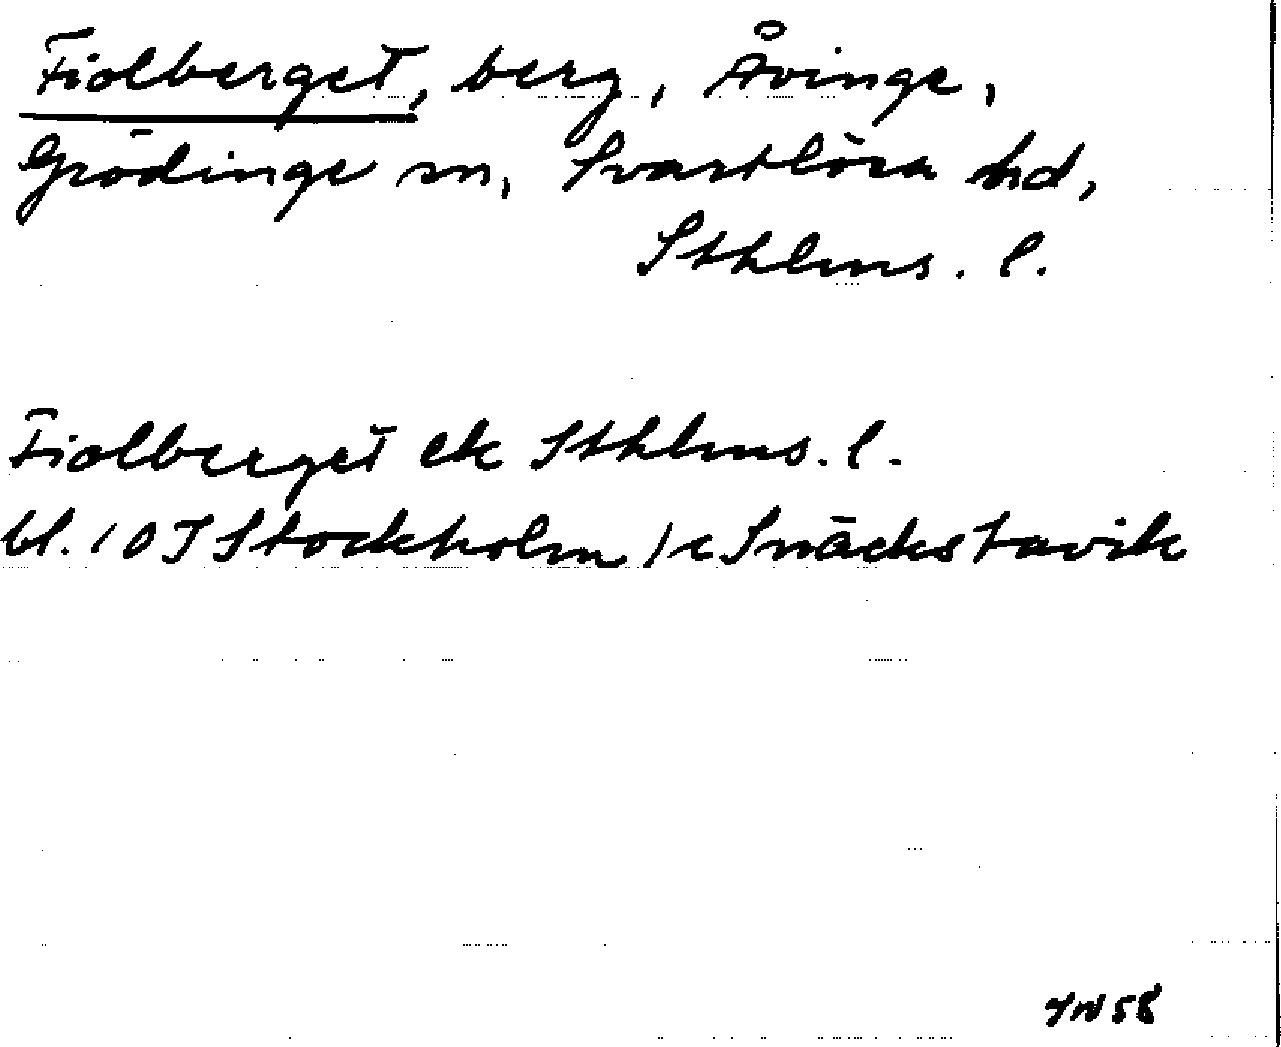 Fiolberget, berg, Åvinge,
Grödinge sn, Svartlösa hd,
Sthlms. l.
Fiolberget ek Sthlms. l.
bl. 10 I Stockholm 1 c Snäckstavik